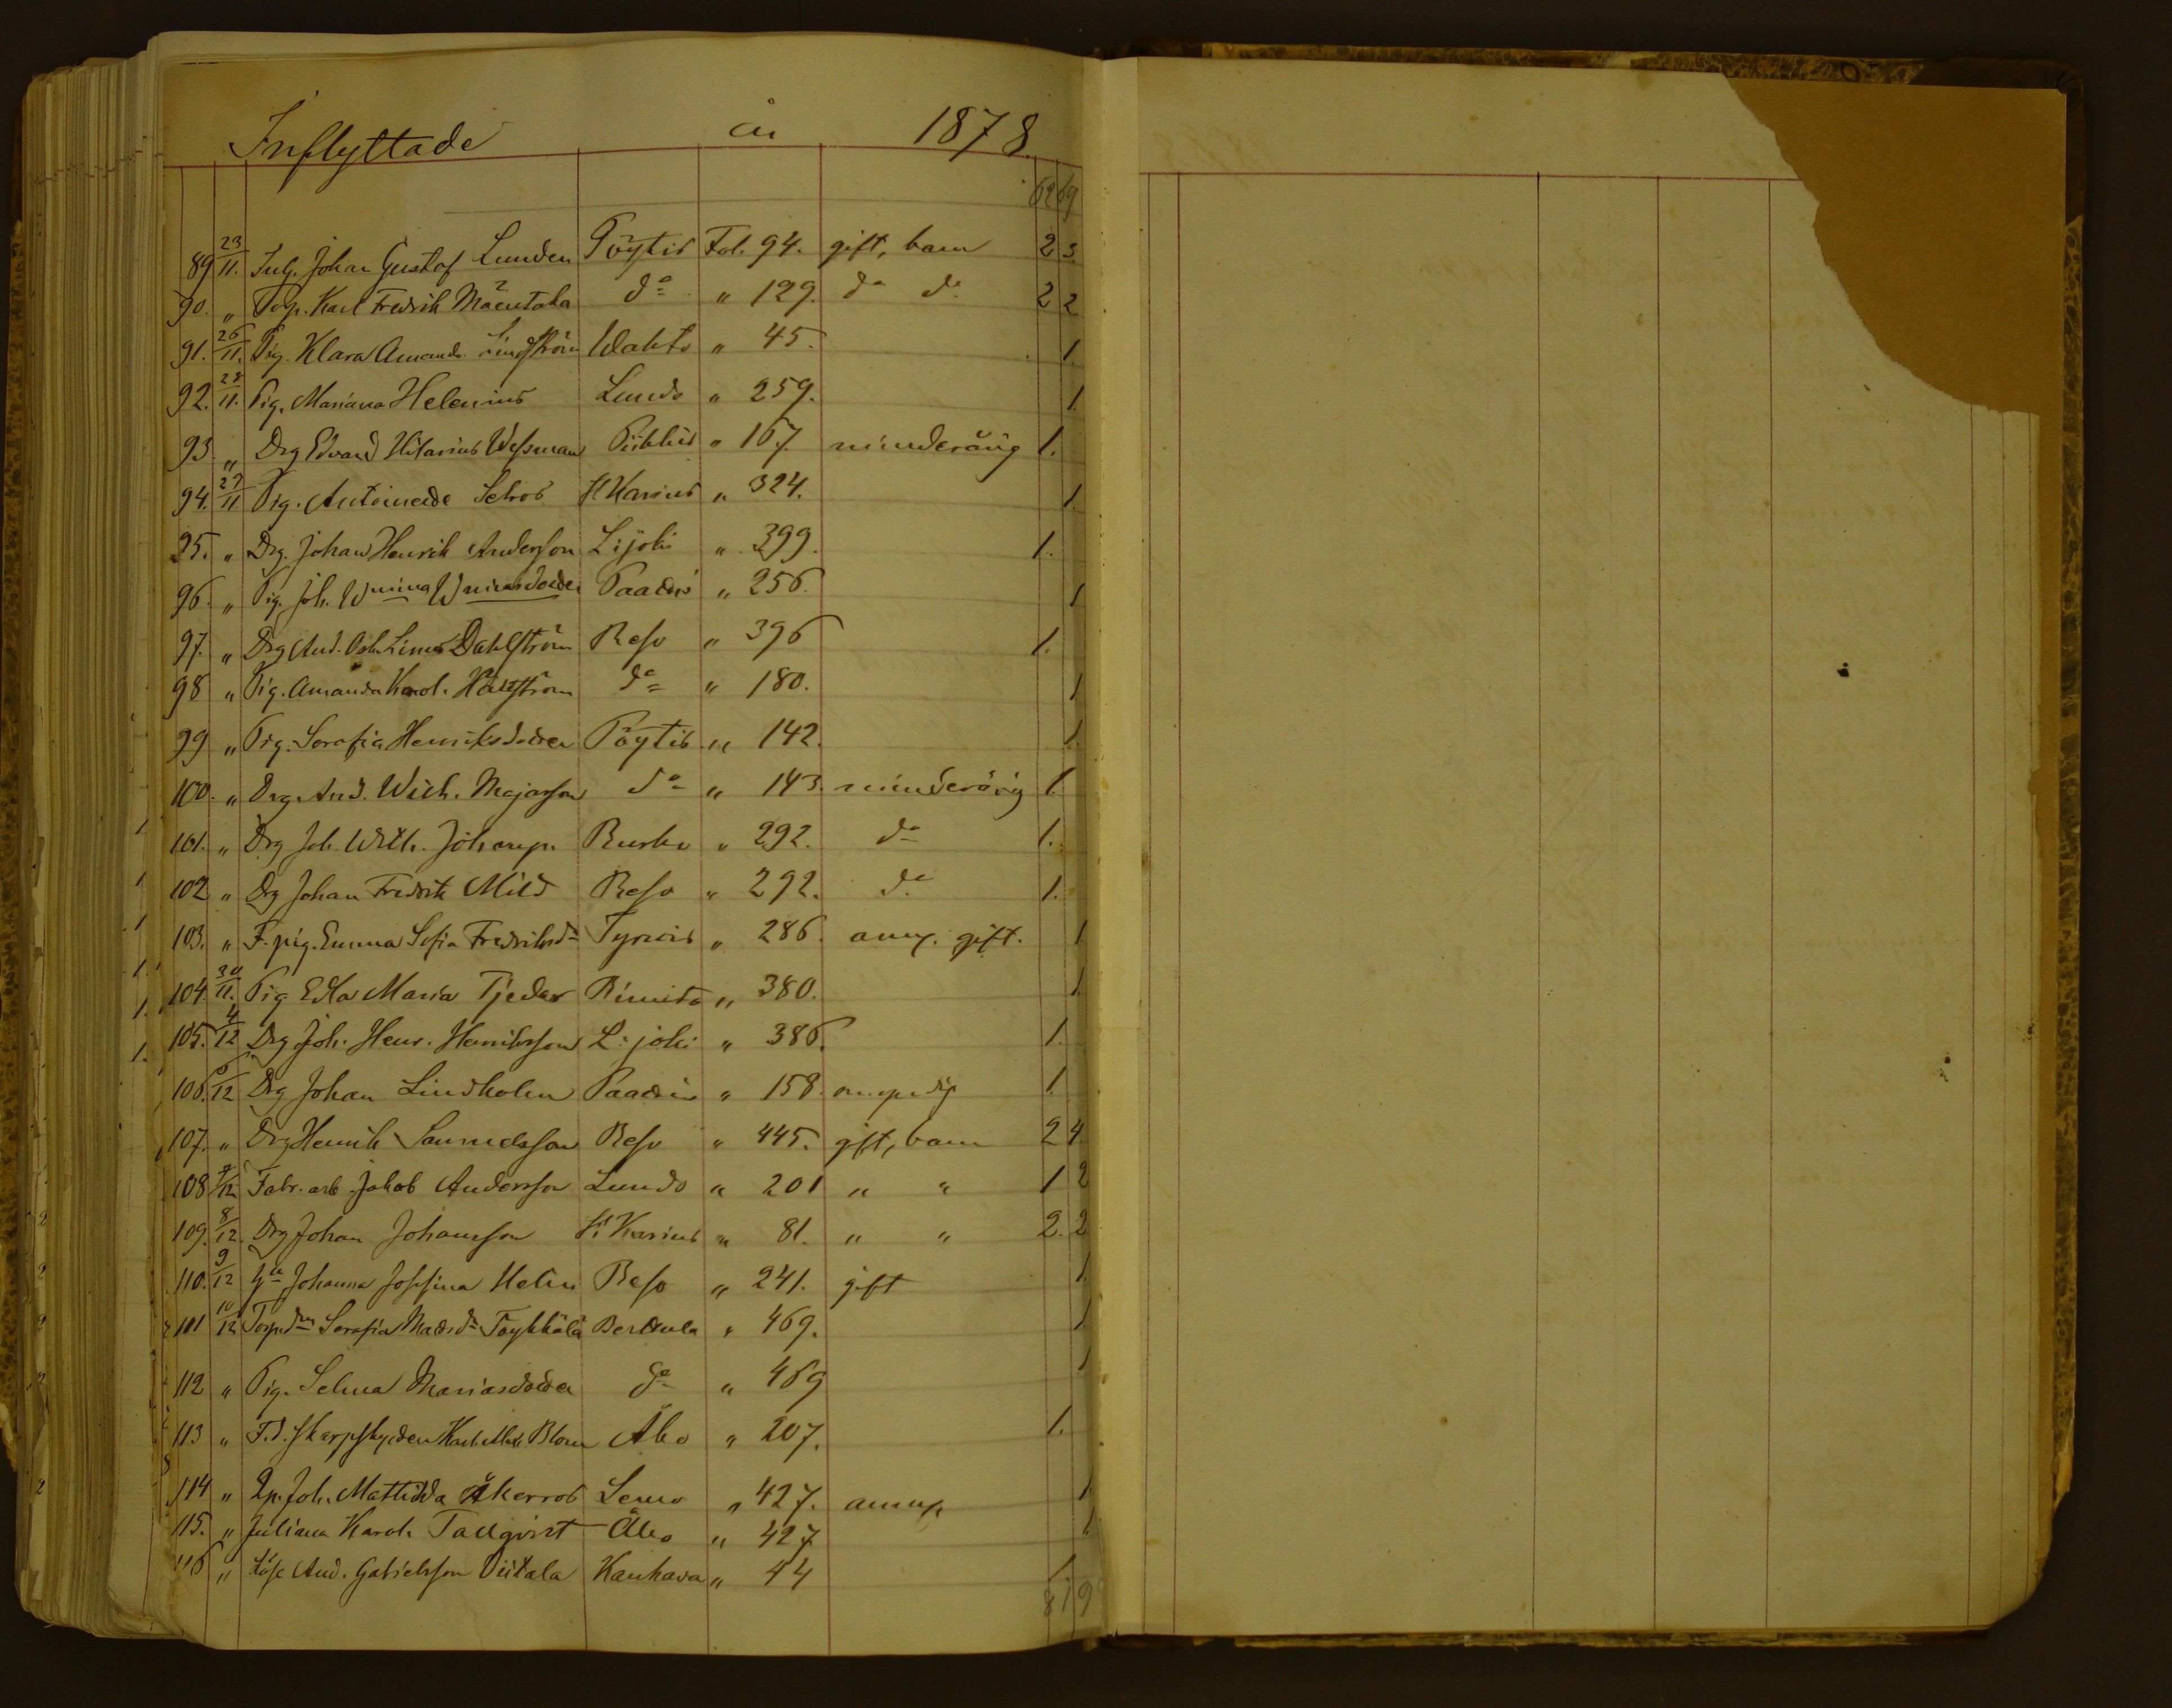 Inflyttade år 1878
62 69
89 23/11. Inh. Johan Gustaf Lunden Pöytis Fol. 94. gift, barn 2 3
90. " Torp. Karl Fredrik Mäentaka do " 129. do do 2 2
91. 26/11. Pig. Klara Amanda Lindström Wahto " 45. 1.
92. 28/11. Pig. Mariana Helenius Lundo " 259. 1
93 " Drg Edvard Hilarius Wessman Piikkis " 167. minderårig 1.
94. 29/11 Pig. Antoinette Selros St Karins " 324. 1.
95. " Drg. Johan Henrik Andersson L:joki " 399. 1.
96. " Pig. Joh. Wmina Wmasdotter Paattis " 256. 1
97. " Drg And. Osk. Linus Dahlström Reso " 396 1.
98 " Pig. Amanda Karol. Hallström do " 180. 1
99 " Pig. Serafia Henriksdotter Pöytis " 142. 1.
100. " Drg. And. Wilh. Majasson do " 143. minderårig 1.
101. " Drg Joh. Wilh. Johansn. Rusko " 292. do 1.
102 " Drg Johan Fredrik Mild Reso " 292. do 1.
103. " F. pig. Emma Sofia Fredriksdr Tyrvis " 286. anny. gift. 1
104. 30/11. Pig Edla Maria Tjeder Rimito " 380. 1
105. 4/12 Drg Joh. Henr. Henriksson L:joki " 386. 1.
106. /12 Drg Johan Lindholm Paattis " 158. 1.
107. " Drg Henrik Samuelsson Reso " 445. gift, barn 2 4
108 7/12 Fabr. arb. Jakob Andersson Lundo " 201 " " 1 2
109. 8/12. Drg Johan Johansson St Karins " 81. " " 2. 2
110. 9/12 Johanna Josefina Helin Reso " 241. gift 1
101 10/12 Torpd Serafia Matsdr Töykkälä Berttula " 469. 1
112 " Pig. Selma Mariasdotter do " 469 1
113 " F.d. skarpskytten Karl Blom Åbo " 207. 1.
114 " Joh. Mathilda Åkerros Lemo " 427. 1
115. " Juliana Karol. Tallqvist Åbo " 427 1
116 " And. Gabrielsson Viitala Kauhava " 44 1.
81 9